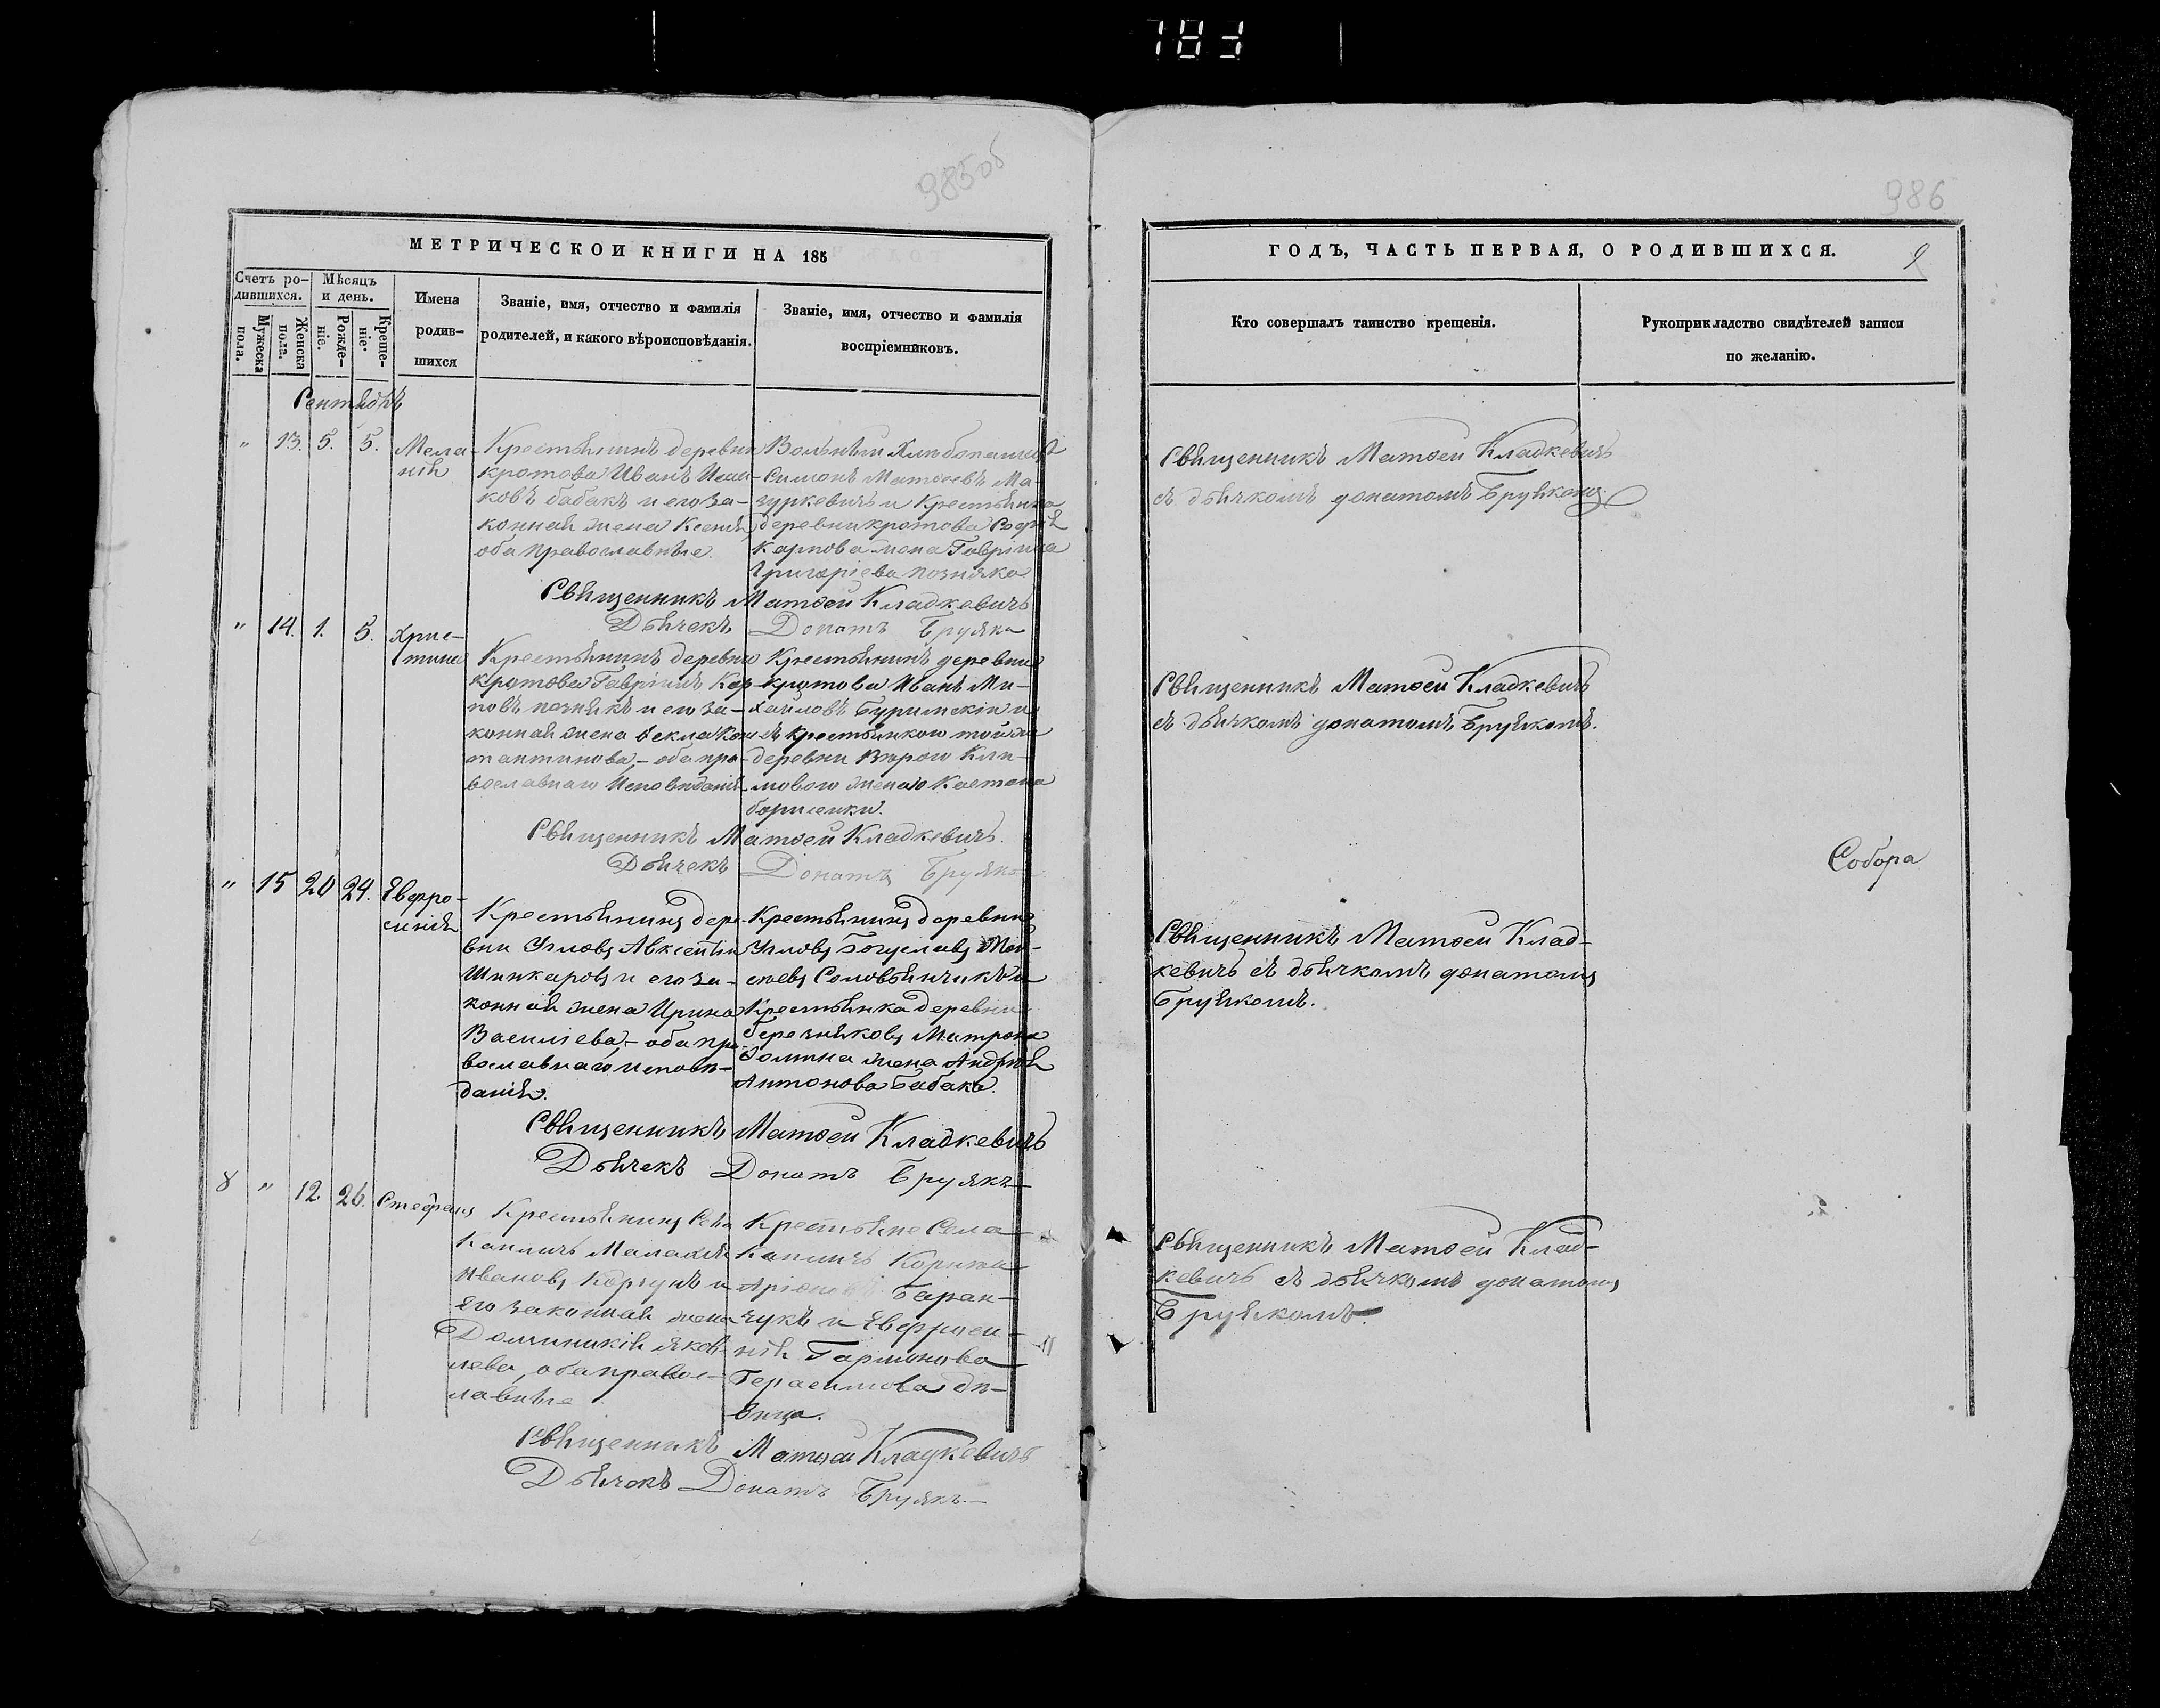 783
985об
МЕТРИЧЕСКОЙ КНИГИ НА 185
Счетъ ро-
дившихся.
Мѣсяцъ
и день.
Мужеска
пола.
Женска
пола.
Рожде-
ніе.
Креще-
ніе.
Имена
родив-
шихся
Званіе, имя, отчество и фамилія
родителей, и какого вѣроисповѣданія.
Званіе, имя, отчество и фамилія
воспріемниковъ.
Сентябрь
" 13. 5. 5.
Мела-
нія
Крестьянинъ деревни
кротова Иванъ Исаа-
ковъ бабакъ и его за-
конная жена Ксенія,
оба православные.
Вольный Хлебопашецъ
Симонъ Матѳеевъ Ма-
зуркевичъ и Крестьянка
деревни кротова Софія
Карпова жена Гавріила
Григоріева позняка
Священникъ Матѳей Кладкевичъ
Дьячекъ Донатъ Бруяка
" 14. 1. 5.
Хрис-
тина
Крестьянинъ деревни
кротова Гавріилъ Кар-
повъ познякъ и его за-
конная жена Ѳекла Конс-
тантинова, - оба пра-
вославнаго Исповѣданія
Крестьянинъ деревни
кротова Иванъ Ми-
хайловъ Буримскій и
съ крестьянкою той же
деревни Вѣрою Кли-
мовою женою Каетана
борисенки.
Священникъ Матѳей Кладкевичъ.
Дьячекъ Донатъ Бруяка
" 15 20 24.
Евфро-
синія
Крестьянинъ дере-
вни Угловъ Авксентій
Шинкаровъ и его за-
конная жена Ирина
Василіева, - оба пра-
вославнаго исповѣ-
данія.
Крестьянинъ деревни
Угловъ Богуславъ Мои-
сеевъ Соловьянчикъ и
Крестьянка деревни
Березняковъ Матрона
Ѳомина жена Андрея
Антонова Бабака.
Священникъ Матѳей Кладкевичъ
Дьячекъ Донатъ Бруякъ
8 " 12 26.
Стефанъ
Крестьянинъ Села
Капличъ Малахія
Ивановъ Коргунъ и
его законная жена
Доминикія Яков-
лева, оба правос-
лавные
Крестьяне Села
Капличъ
Баран-
чукъ и Евфроси-
нія
Герасимова дѣ-
вица.
Священникъ Матѳей Кладкевичъ
Дьячокъ Донатъ Бруякъ.
986
ГОДЪ, ЧАСТЬ ПЕРВАЯ, О РОДИВШИХСЯ.
9
Кто совершалъ таинство крещенія.
Рукоприкладство свидѣтелей записи
по желанію.
Священникъ Матѳей Кладкевичъ
съ дьячкомъ донатомъ Бруякомъ.
Священникъ Матѳей Кладкевичъ
съ дьячкомъ донатомъ Бруякомъ.
Собора
Священникъ Матѳей Клад-
кевичъ съ дьячкомъ донатомъ
Бруякомъ.
Священникъ Матѳей Клад-
кевичъ съ дьячкомъ донатомъ
Бруякомъ.